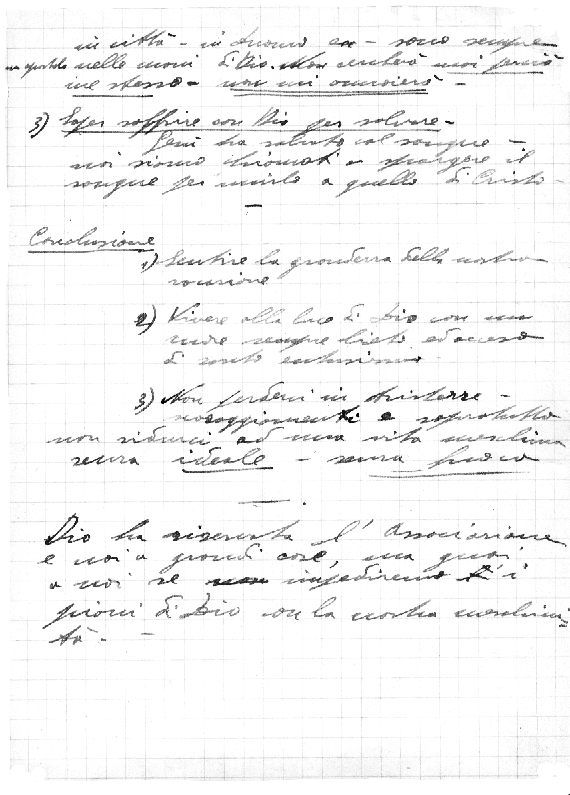 in città - in duomo - sono sempre
un apostolo nelle mani di Dio. Non mai perciò
me stesso - non mi annoierò -
3) Saper soffrire con Dio per salvare -
Gesù ha salvato col sangue -
noi siamo chiamati a spargere il
sangue per unirlo a quello di Cristo -
Conclusione
1) Sentire la grandezza della nostra
vocazione
2) Vivere alla luce di Dio con un
cuore sempre lieto ed acceso
di santo entusiasmo
3) Non perderci in tristezze -
scoraggiamenti e soprattutto
non ridurci ad una vita meschina
senza ideale - senza fuoco
Dio ha riservata l'Associazione
e noi a grandi cose, ma guai
a noi se impediremo i
piani di Dio con la nostra meschini=
tà -